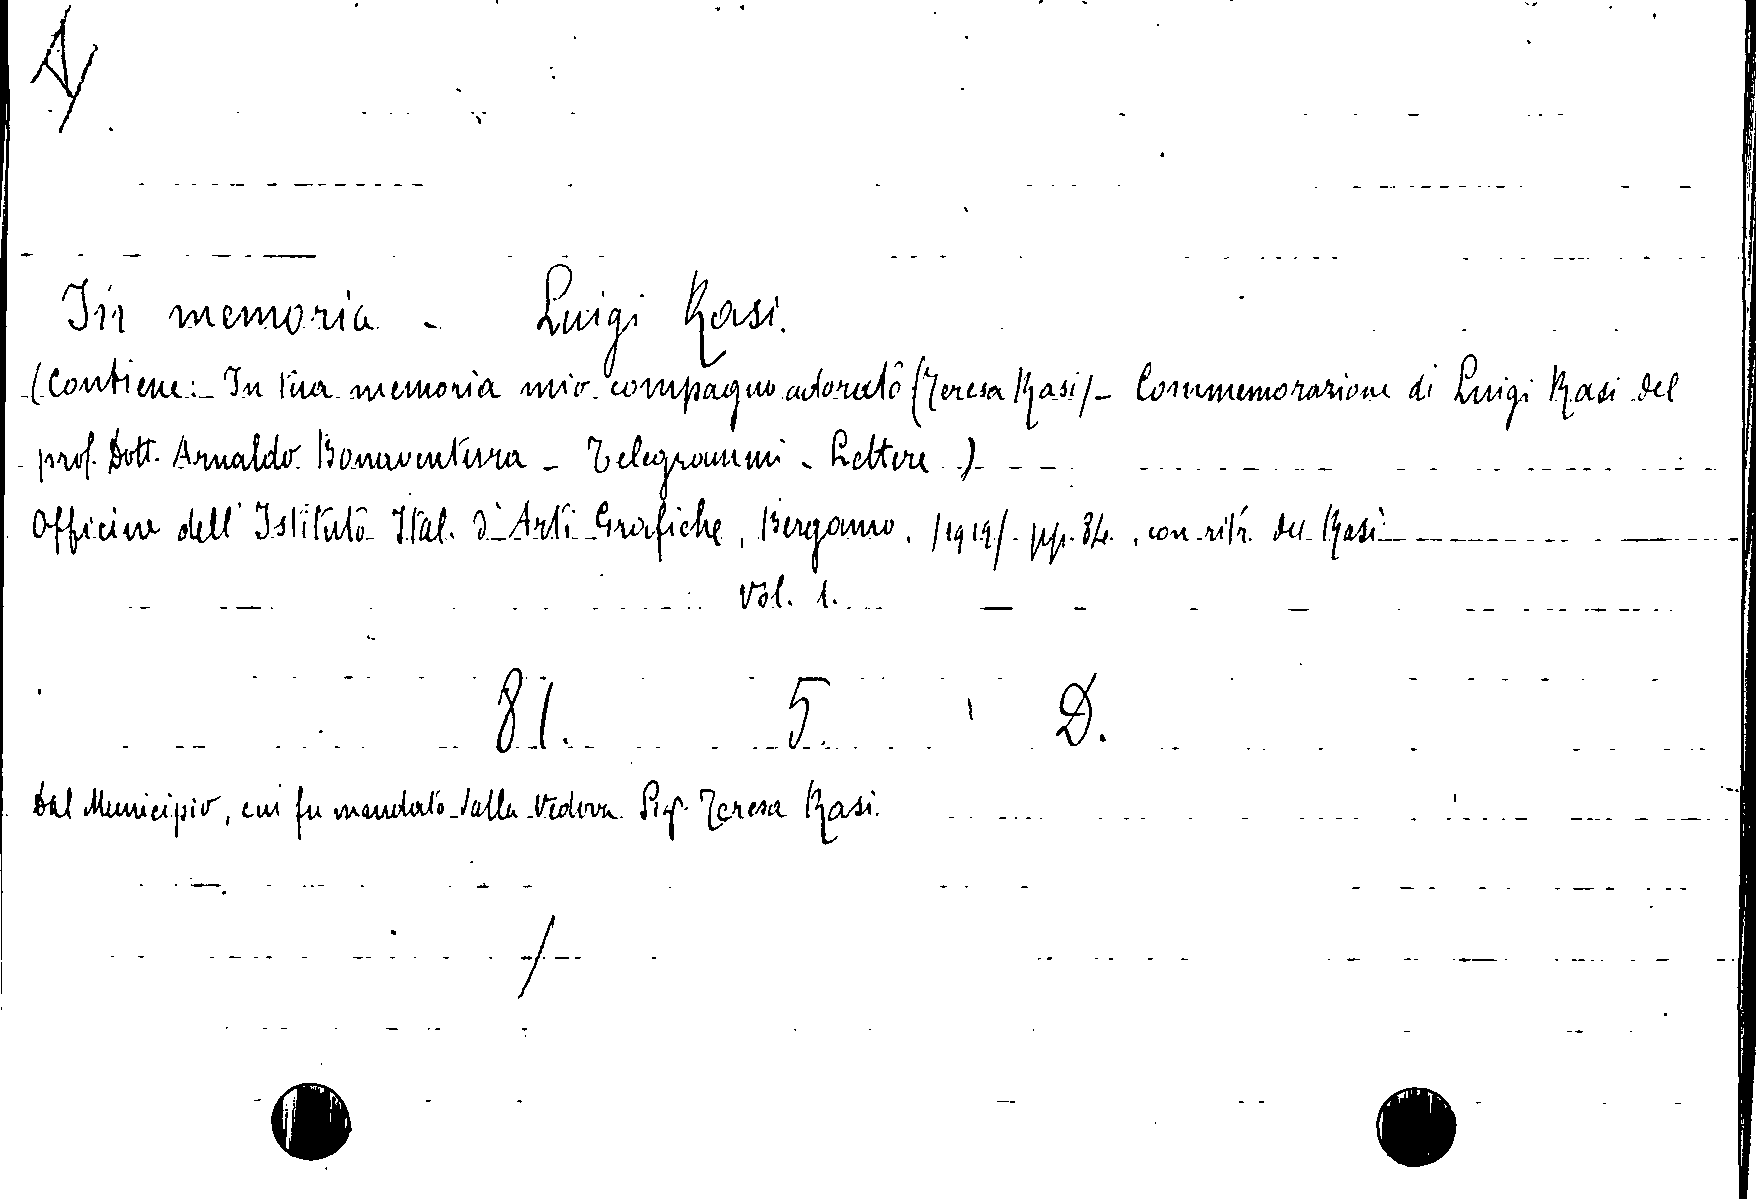 In memoria - Luigi Rasi.
(Contiene: - In tua memoria mio compagno adorato (Teresa Rasi) - Commemorazione di Luigi Rasi del
prof. Dott. Arnaldo Bonaventura - Telegrammi - Lettere)
Officine dell' Istituto Ital. d' Arti Grafiche, Bergamo, (1919). pp. 84., con ritr. del Rasi
Vol. 1.
81. 5. D.
Dal Municipio, cui fu mandato dalla Vedova Sig. Teresa Rasi.